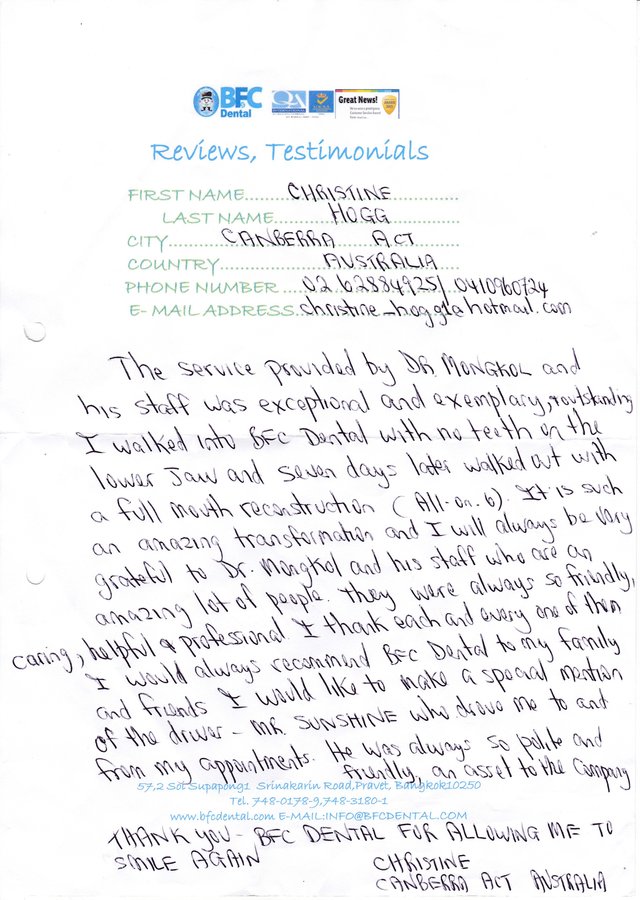 BFC
Dental
QA
Great News!
Reviews, Testimonials
FIRST NAME......CHRISTINE......
LAST NAME......HOGG......
CITY......CANBERRA ACT......
COUNTRY......AUSTRALIA......
PHONE NUMBER ....02 62884925/ 0410960724
E-MAIL ADDRESS.christine_hogg1@hotmail.com
The service provided by DR. MONGKOL and
his staff was exceptional and exemplary, + outstanding
I walked into BFC Dental with no teeth on the
lower jaw and seven days later walked out with
a full mouth reconstruction (All-on. 6). It is such
an amazing transformation and I will always be very
grateful to Dr. Mongkol and his staff who are an
amazing lot of people. They were always so friendly,
caring, helpful & professional I thank each and every one of them
I would always recommend BFC Dental to my family
and friends I would like to make a special mention
of the driver - MR. SUNSHINE who drove me to and
from my appointments. He was always so polite and
friendly, an asset to the Company
57,2 Soi Supapong1 Srinakarin Road,Pravet, Bangkok10250
Tel. 748-0178-9,748-3180-1
www.bfcdental.com E-MAIL:INFO@BFCDENTAL.COM
THANK YOU - BFC DENTAL FOR ALLOWING ME TO
SMILE AGAIN
CHRISTINE
CANBERRA ACT AUSTRALIA